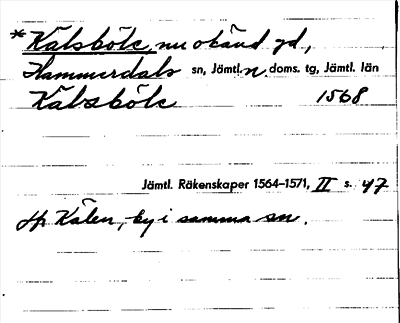 *Kälsböle, nu okänd gd,
Hammerdals sn, Jämtl. n. doms. tg, Jämtl. län
Kälsböle 1568
Jämtl. Räkenskaper 1564-1571, II s. 47
Jfr Kälen, by i samma sn.